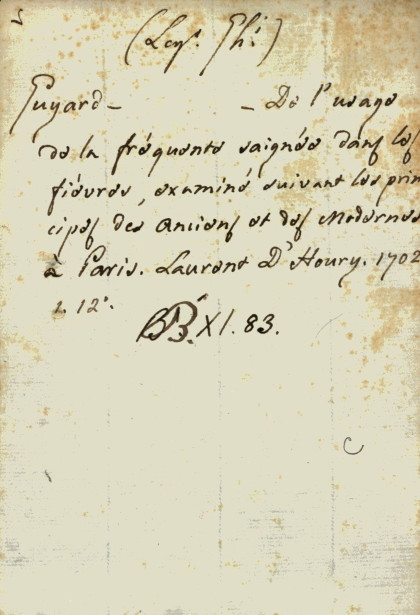 (Leg. Ph:)
Guyard - - De l'usage
de la fréquente saignée dans les
fiévres, examiné suivant les prin
cipes des Anciens et des Modernes
à Paris. Laurent D'Houry. 1702
1. 12°.
BB. XI. 83.